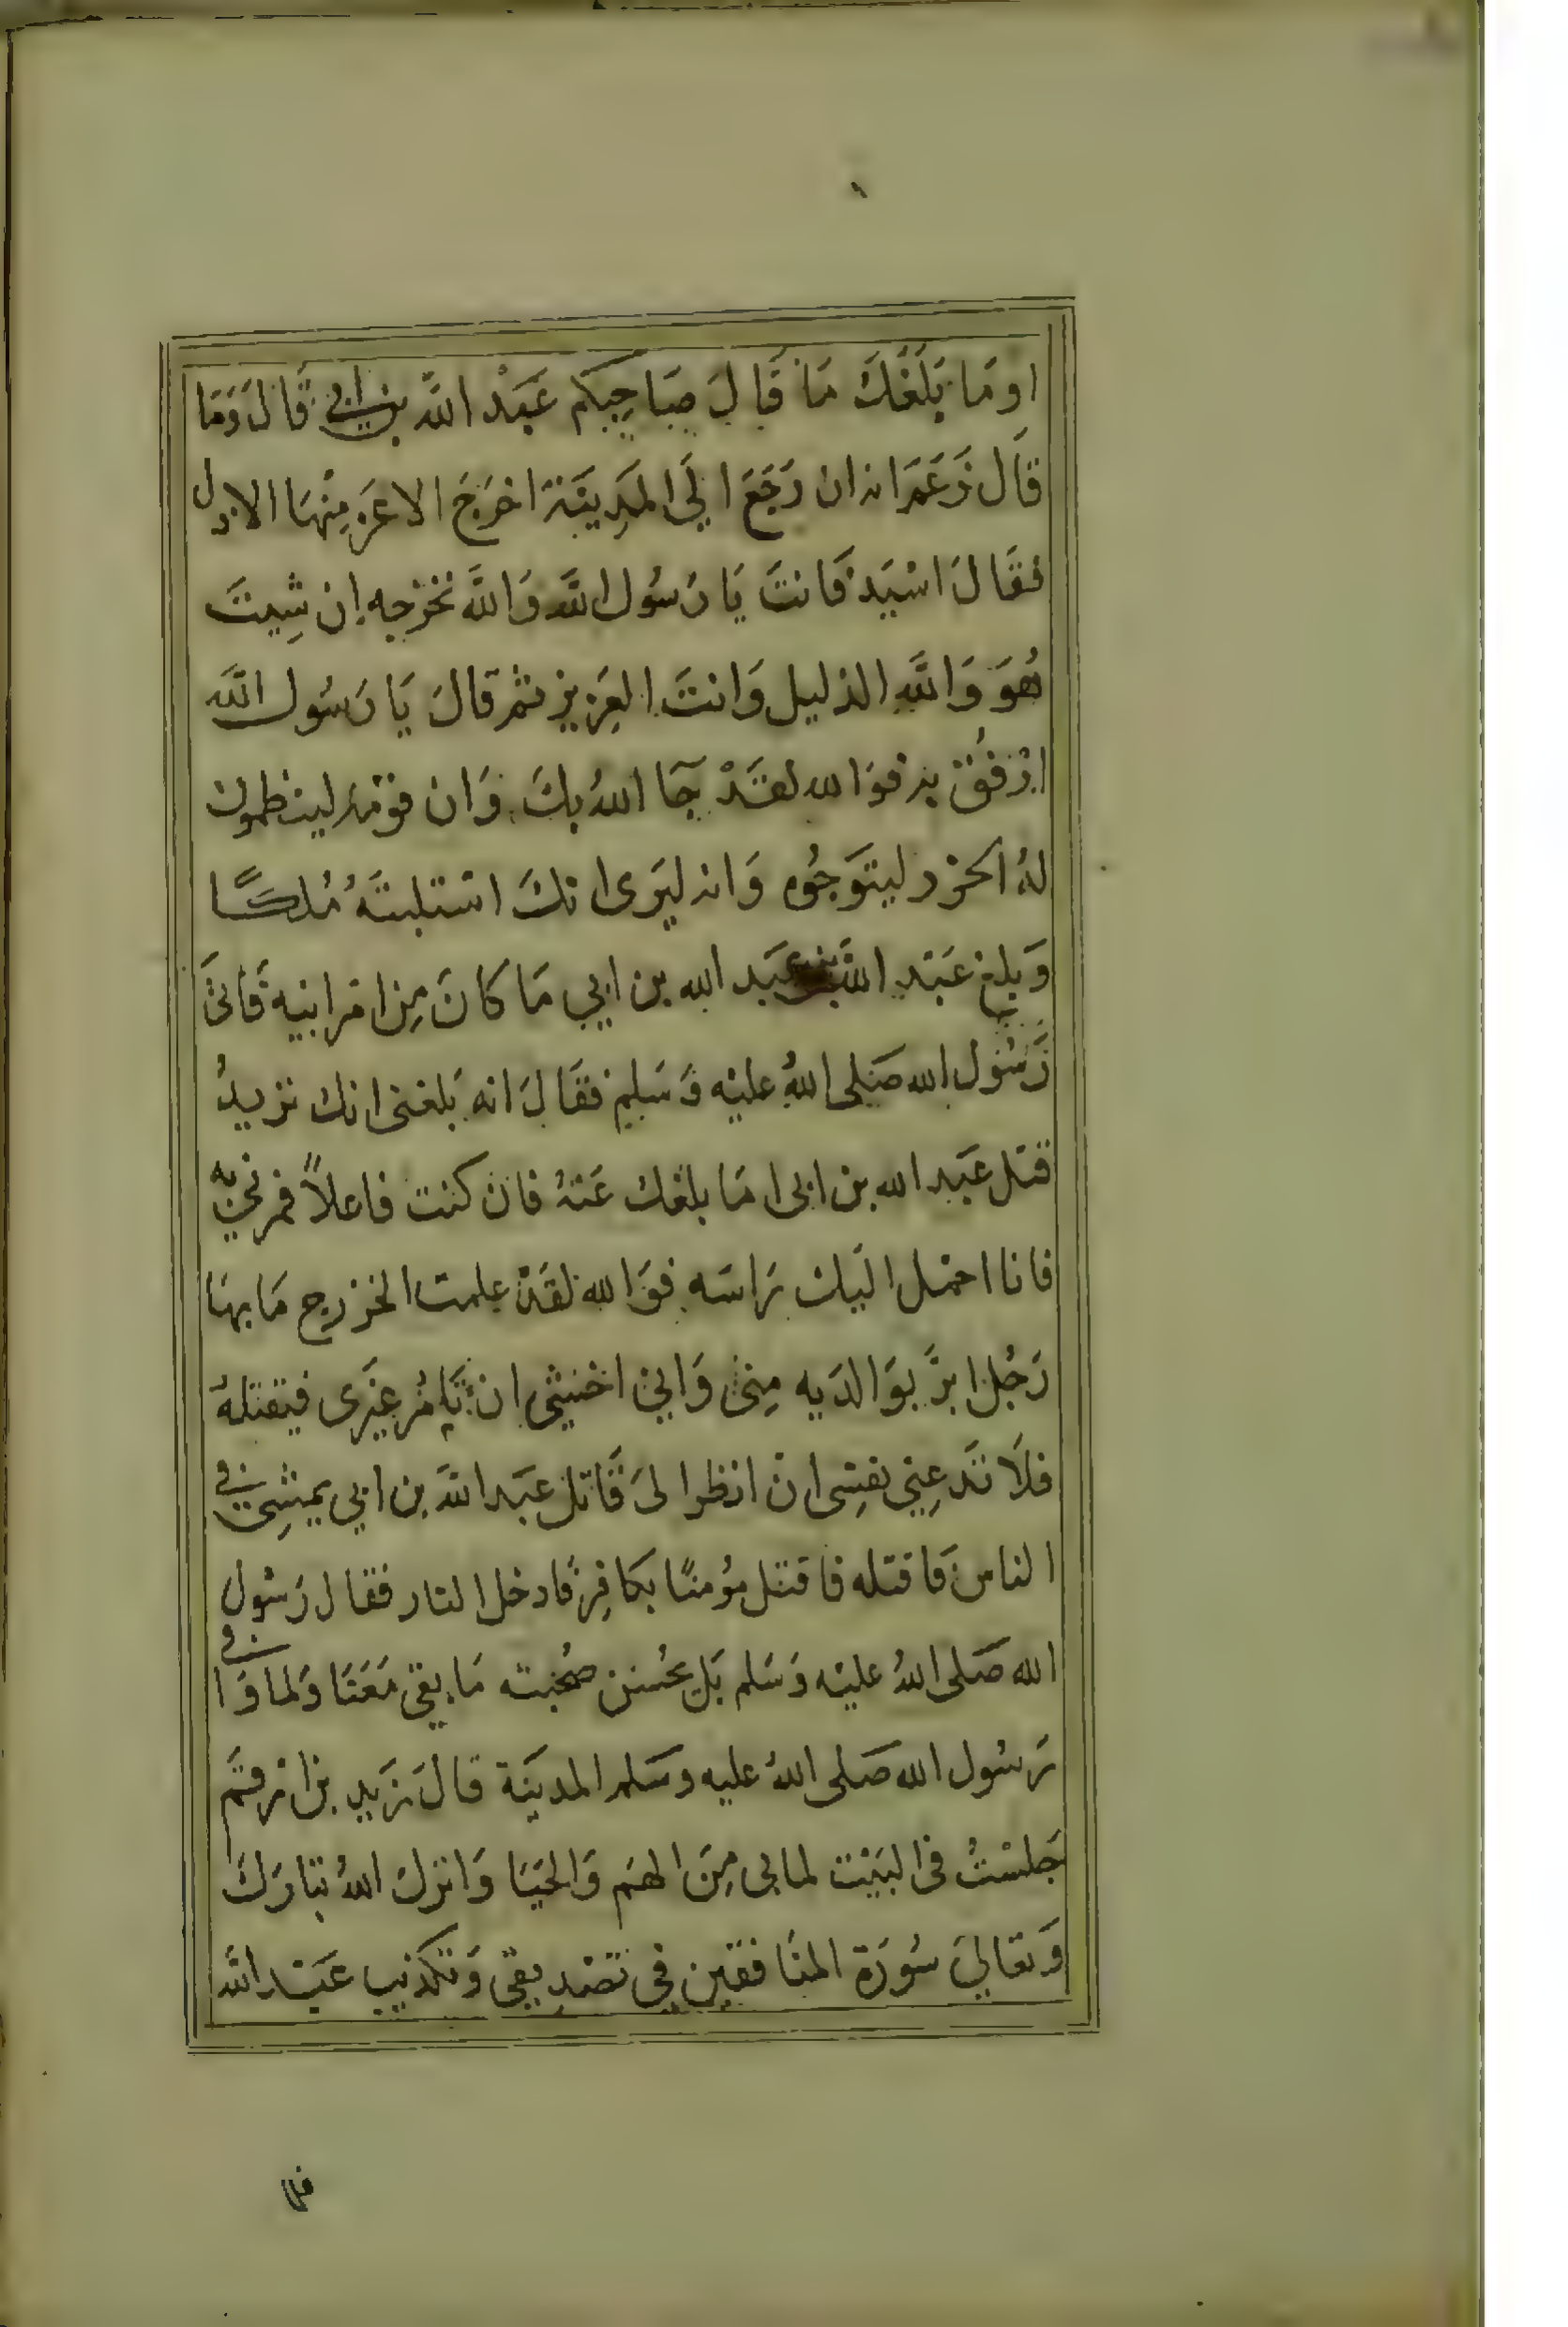 اومَا بَلَغَكَ مَا قَالَ صَاحِبكم عَبْد اللَّه بن ابي قَالَ وَمَا
قَال زَعَمَ انه ان رَجَعَ الَي المَدِينَة اخرَجَ الاعَز مِنْهَا الاذل
فقَالَ اسْيَد فَانتَ يَا رَسُول اللَّه وَاللَّه نخرجه إن شِيتَ
هُوَ وَاللَّهِ الذليل وَانتَ العَزِيز ثم قالَ يَا رَسُول اللَّه
ارْفُق به فوَالله لقَدْ جَا اللهُ بكَ وَان قومَه لينظمون
لهُ الخرز ليتوَجُوه وَانه ليَرى انكَ استلبتَهُ مُلكًا
وَبلغ عَبْد اللَّه بن عَبَد الله بن ابي مَا كانَ مِن امر ابيه فَاتى
رَسُول الله صَلى اللهُ عليْه وَسَلم فقَالَ انه بَلغنى انك تريدُ
قتل عَبَد الله بن ابى لمَا بلغك عَنهُ فان كنت فاعلاً فمرني به
فانا احمل اليَك رَاسَه فوَالله لقَدْ علمت الخزرج مَا بهَا
رَجُل ابرَّ بوَالدَيه مِنى وَاني اخشي ان تَامُر غيَرى فيَقتلهُ
فلَا تَدعِني نفسِى ان انظر الىَ قَاتل عَبَد اللَّه بن ابي يمشِى في
الناس فَاقتله فاقتل مؤمنًا بكافِر فَادخل النار فقال رَسُول
الله صَلى اللهُ عليْه وَسَلم بَل نحُسن صُحْبته مَا بقي مَعَنَا وَلما وَافي
رَسُول الله صَلى اللهُ عليه وسَلم المدينَة قالَ زَيد بن ارقَم
جَلسْتُ فى البَيْت لما بى مِنَ الهَم وَالحَيَا وَانزلَ اللهُ تبَارَكَ
وَتعَاليَ سُورَة المنَافقين في تصْدِيقي وَتكذيب عَبْد اللَّه
فلما